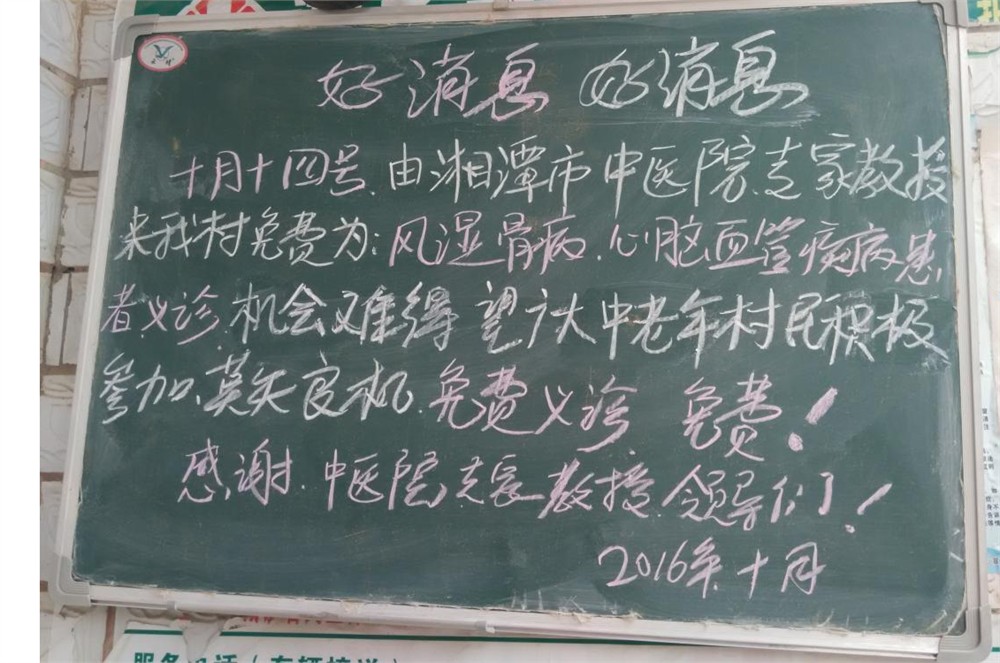 好消息 好消息
十月十四号.由湘潭市中医院.专家教授
来我村免费为:风湿骨病.心脏血管疾病患
者义诊.机会难得 望广大中老年村民积极
参加.莫失良机.免费义诊 免费!
感谢.中医院专家教授.领导们!
2016年.十月